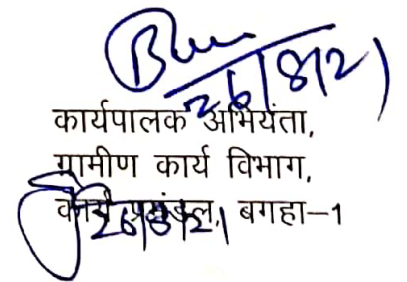 26/8/21
कार्यपालक अभियंता,
ग्रामीण कार्य विभाग,
कार्य प्रमंडल, बगहा-1
26/8/21